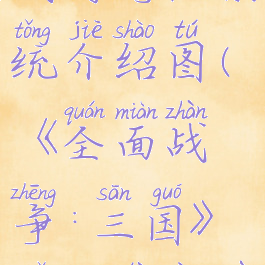 tǒng jiè shào tú
统介绍图(
quán miàn zhàn
《全面战
zhēng sān guó
争:三国》